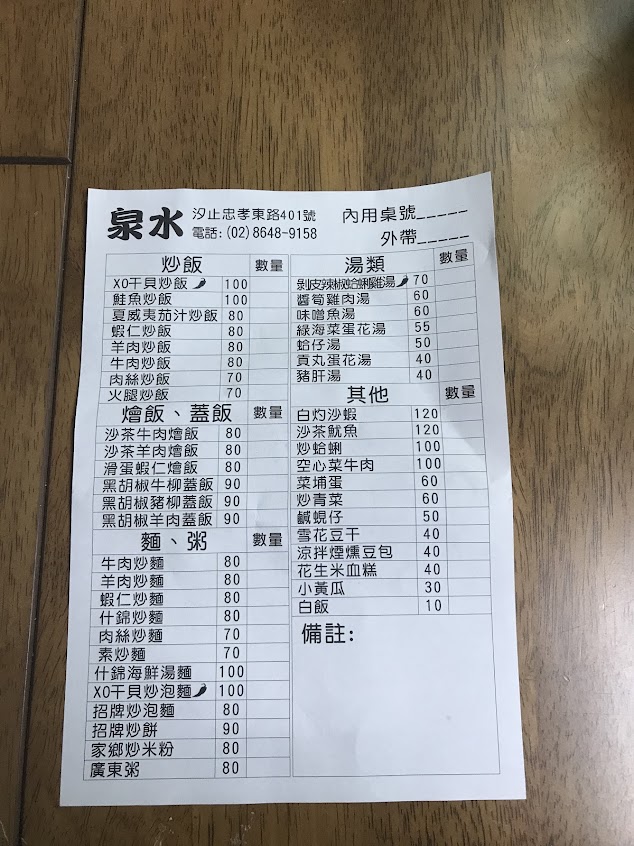 泉水
汐止忠孝東路401號
電話:(02)8648-9158
內用桌號_____
外帶_____
炒飯 數量
XO干貝炒飯 100
鮭魚炒飯 100
夏威夷茄汁炒飯 80
蝦仁炒飯 80
羊肉炒飯 80
牛肉炒飯 80
肉絲炒飯 70
火腿炒飯 70
燴飯、蓋飯 數量
沙茶牛肉燴飯 80
沙茶羊肉燴飯 80
滑蛋蝦仁燴飯 80
黑胡椒牛柳蓋飯 90
黑胡椒豬柳蓋飯 90
黑胡椒羊肉蓋飯 90
麵、粥 數量
牛肉炒麵 80
羊肉炒麵 80
蝦仁炒麵 80
什錦炒麵 80
肉絲炒麵 70
素炒麵 70
什錦海鮮湯麵 100
XO干貝炒泡麵 100
招牌炒泡麵 80
招牌炒餅 90
家鄉炒米粉 80
廣東粥 80
湯類 數量
剝皮辣椒蛤蜊雞湯 70
醬筍雞肉湯 60
味噌魚湯 60
綠海菜蛋花湯 55
蛤仔湯 50
貢丸蛋花湯 40
豬肝湯 40
其他 數量
白灼沙蝦 120
沙茶魷魚 120
炒蛤蜊 100
空心菜牛肉 100
菜埔蛋 60
炒青菜 60
鹹蜆仔 50
雪花豆干 40
涼拌煙燻豆包 40
花生米血糕 40
小黃瓜 30
白飯 10
備註: